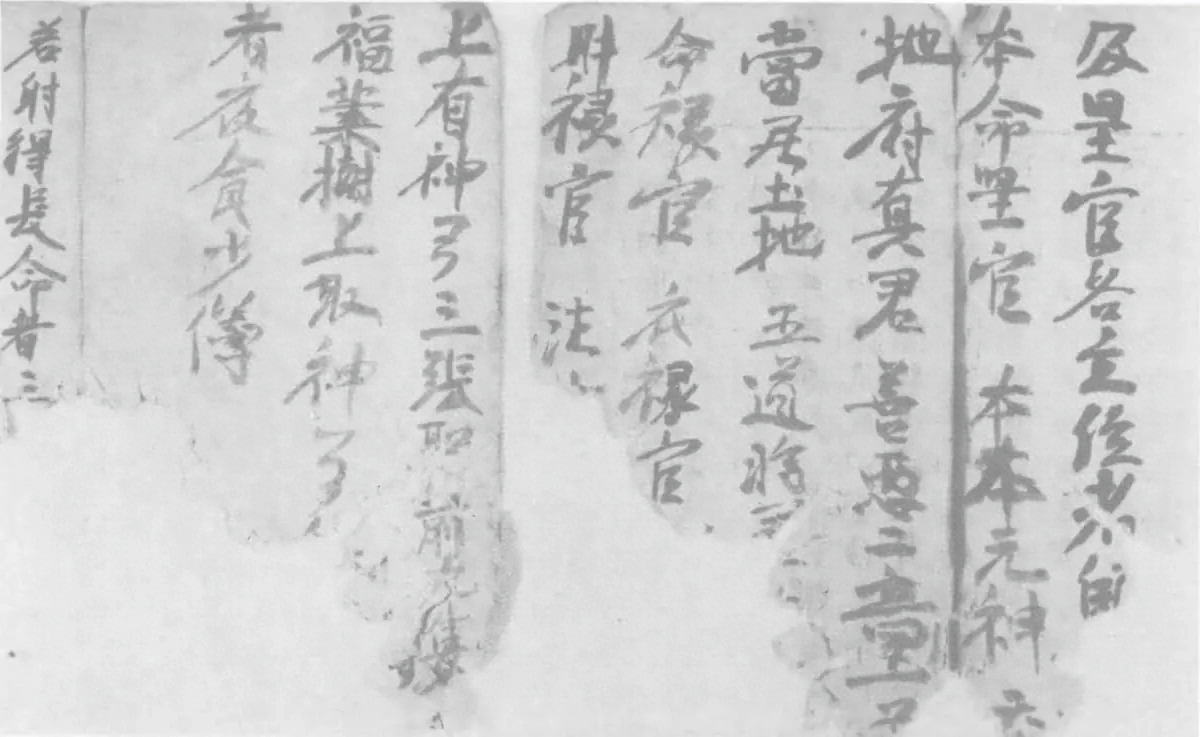 及星官各立後
本命星官 本本元神 天
地府真君 善惡二童
當居土地 五道將
命祿官 衣祿官
財祿官 注
上有神弓三張 前
福業樹上取神弓
者夜食少
若射得長命者三